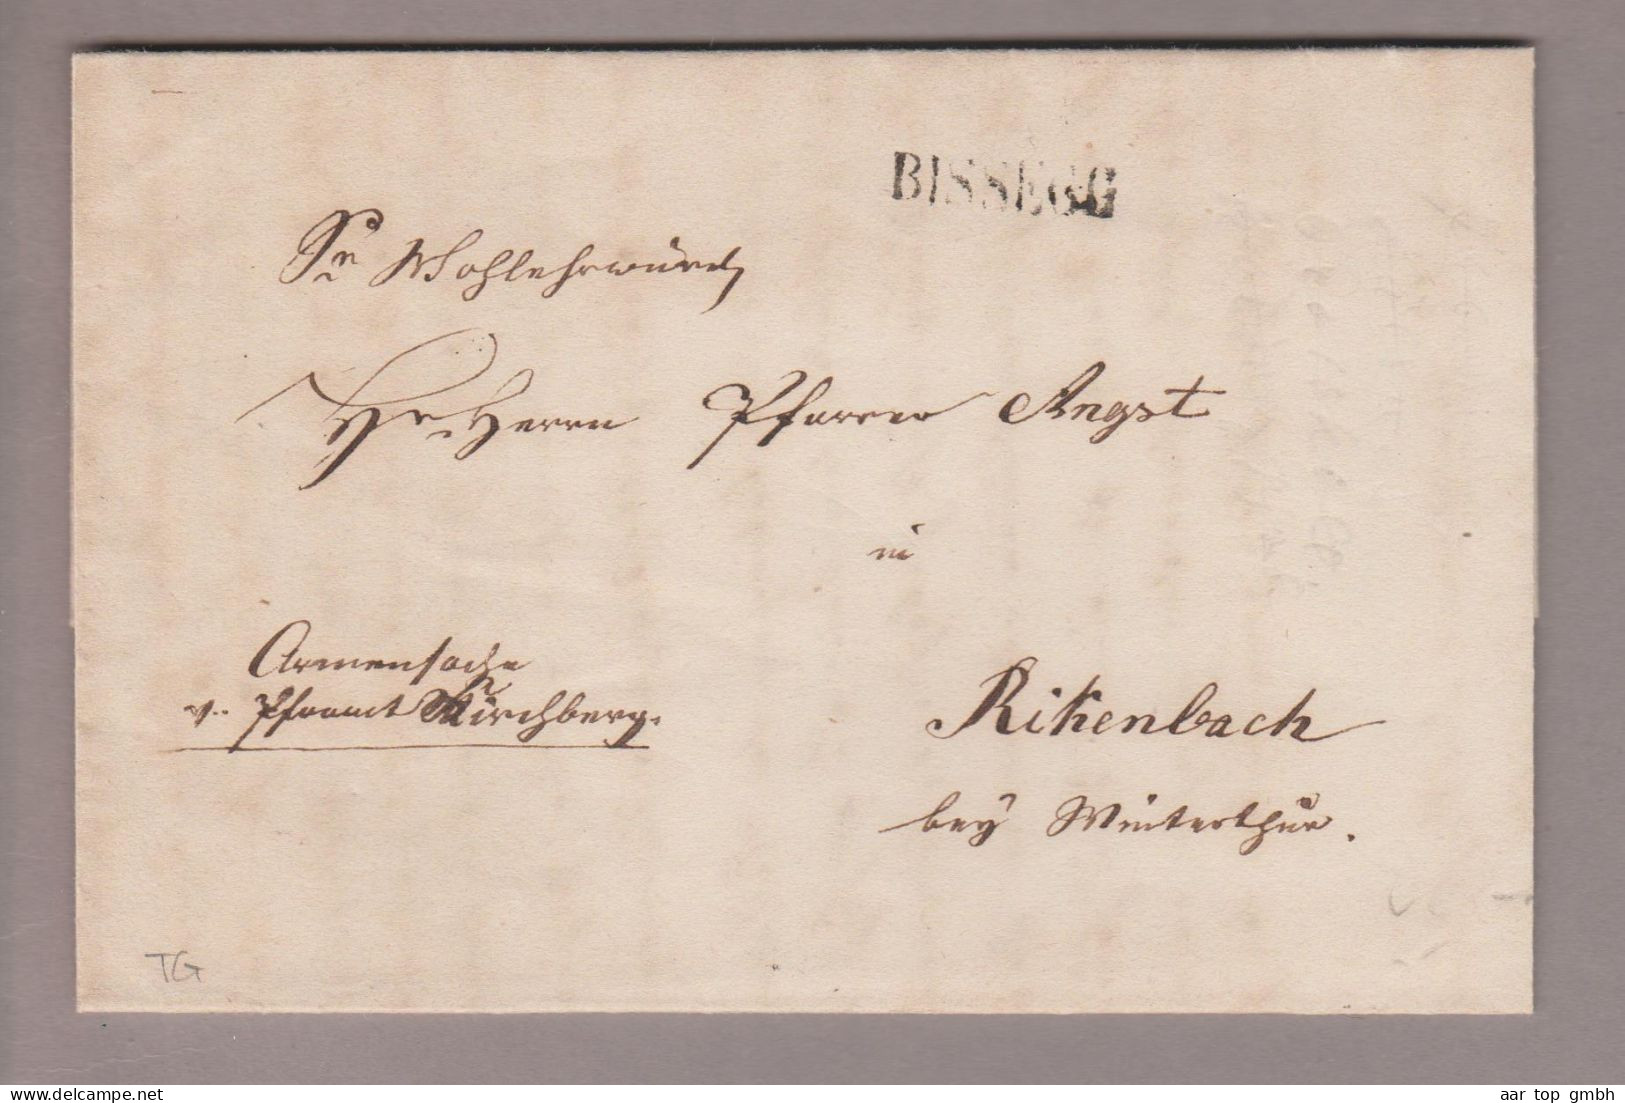 BISSEGG
Sr Wohlehrwürd
Hr. Herrn Pfarrer Angst
in
Armensache
v. Pframt Kirchberg.
Rikenbach
bey Winterthur.
TG
aar top gmbh